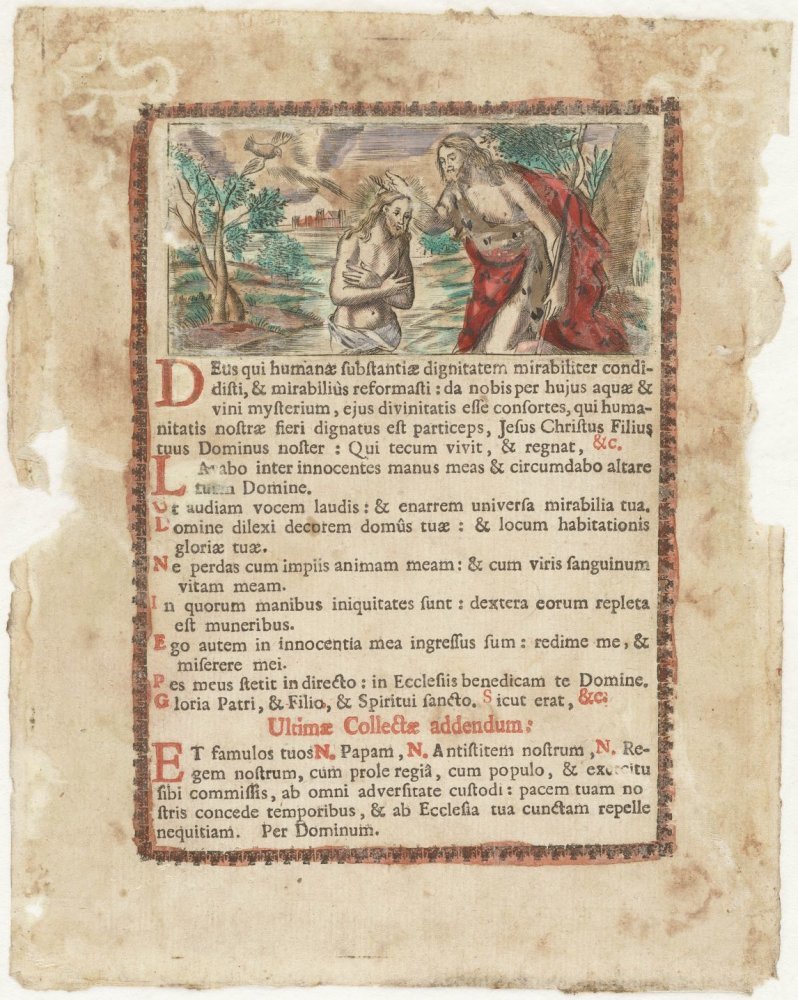 DEus qui humanæ ſubſtantiæ dignitatem mirabiliter condi-
diſti, & mirabiliùs reformaſti : da nobis per hujus aquæ &
vini myſterium, ejus divinitatis eſſe conſortes, qui huma-
nitatis noſtræ fieri dignatus eſt particeps, Jeſus Chriſtus Filius
tuus Dominus noſter : Qui tecum vivit, & regnat, &c.
LAvabo inter innocentes manus meas & circumdabo altare
tuum Domine.
Ut audiam vocem laudis : & enarrem univerſa mirabilia tua.
Domine dilexi decorem domûs tuæ : & locum habitationis
gloriæ tuæ.
Ne perdas cum impiis animam meam : & cum viris ſanguinum
vitam meam.
In quorum manibus iniquitates ſunt : dextera eorum repleta
eſt muneribus.
Ego autem in innocentia mea ingreſſus ſum : redime me, &
miſerere mei.
Pes meus ſtetit in directo : in Eccleſiis benedicam te Domine.
Gloria Patri, & Filio, & Spiritui ſancto. Sicut erat, &c.
Ultimæ Collectæ addendum:
ET famulos tuos N. Papam, N. Antiſtitem noſtrum, N. Re-
gem noſtrum, cum prole regiâ, cum populo, & exercitu
ſibi commiſſis, ab omni adverſitate cuſtodi : pacem tuam no
ſtris concede temporibus, & ab Eccleſia tua cunctam repelle
nequitiam. Per Dominum.